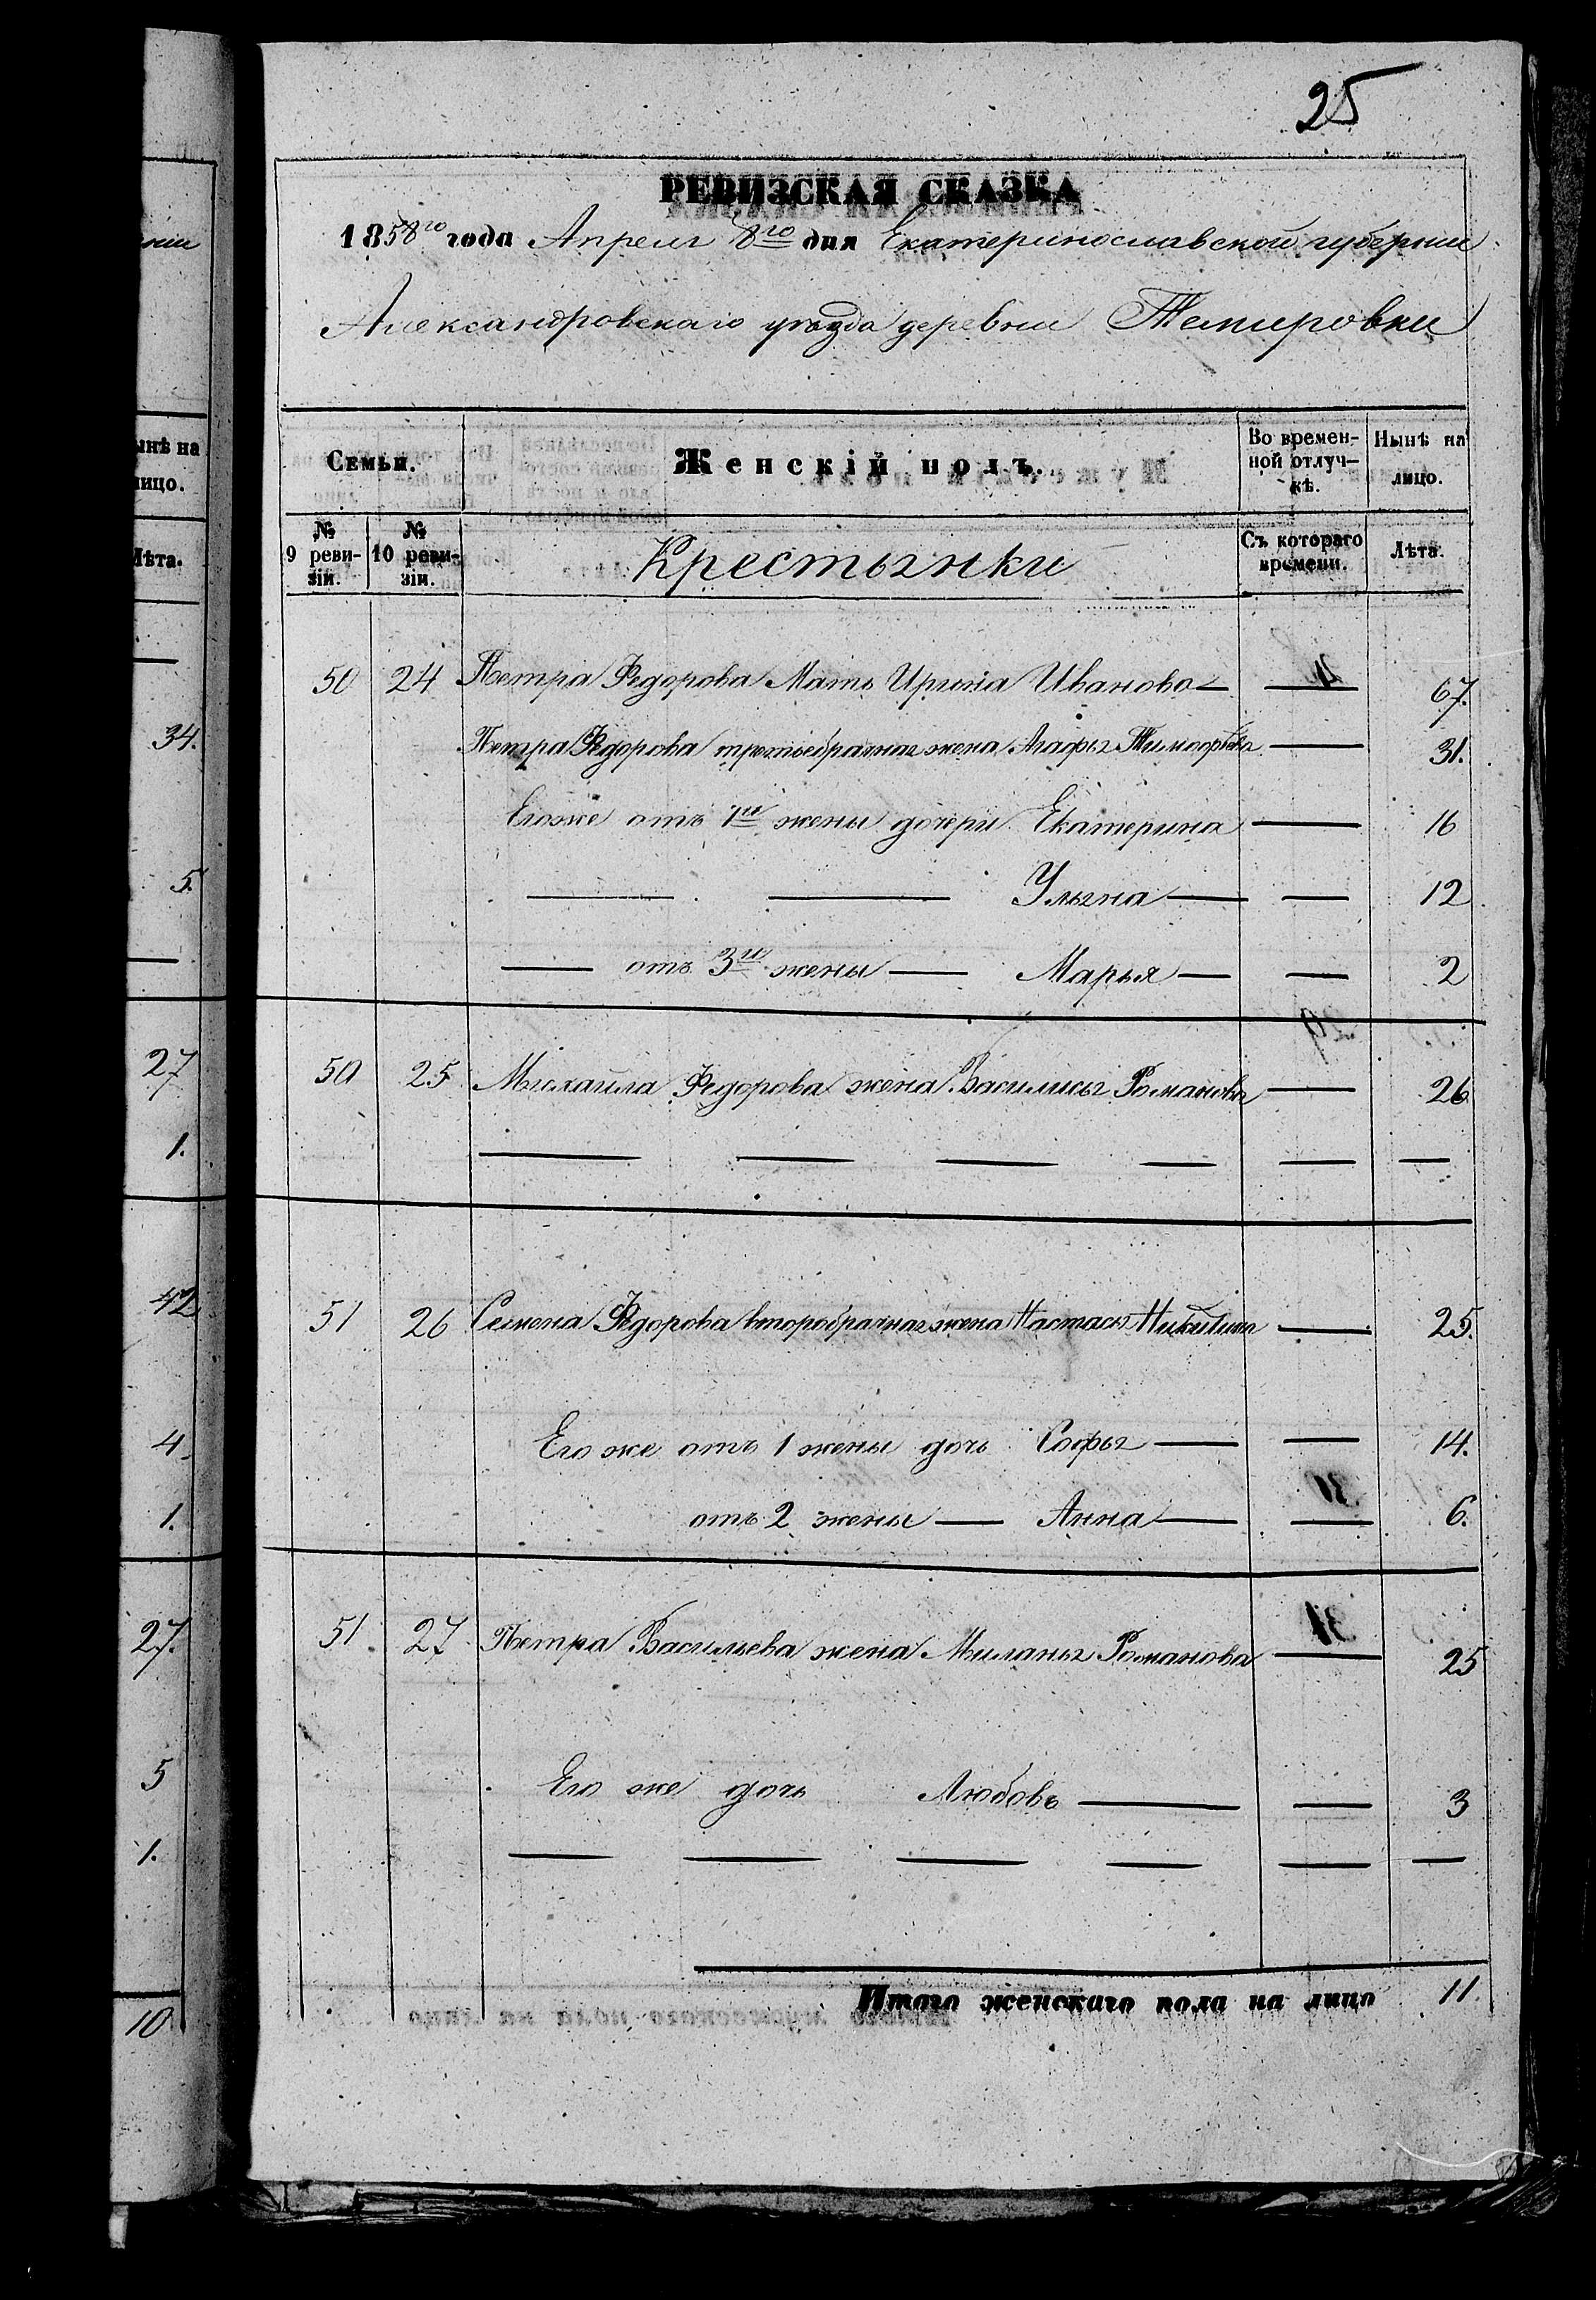 25
РЕВИЗСКАЯ СКАЗКА
1858го года Апреля 8го дня Екатеринославской губернии
Александровскаго уѣзда деревни Темировки
Семьи. Женскій полъ. Во времен- Ныне на
ной отлуч- лицо.
кѣ.
№ № Крестьянки Съ котораго Лѣта.
9 реви- 10 реви- времени.
зіи. зіи.
50 24 Петра Федорова Мать Ирина Иванова — — 67.
Петра Федорова третьебрачная жена Агафья Тимофѣева — 31.
Его же отъ 1й жены дочери Екатерина — 16
— — Ульяна — — 12
— отъ 3й жены — Марья — — 2
50 25 Михаила Федорова жена Василиса Романова — 26
— — — — — —
51 26 Семена Федорова второбрачная жена Настасья Никитина — 25.
Его же отъ 1 жены дочь Софья — — 14.
отъ 2 жены — Анна — — 6.
51 27 Петра Васильева жена Миланья Романова — 25
Его же дочь Любовь — — 3
— — — — — —
Итого женскаго пола на лицо 11
нынѣ на
лицо.
Лѣта.
—
34.
5.
—
27
1.
42
4.
1.
27.
5
1.
10